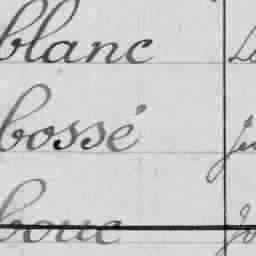 blanc
bossé
bouc